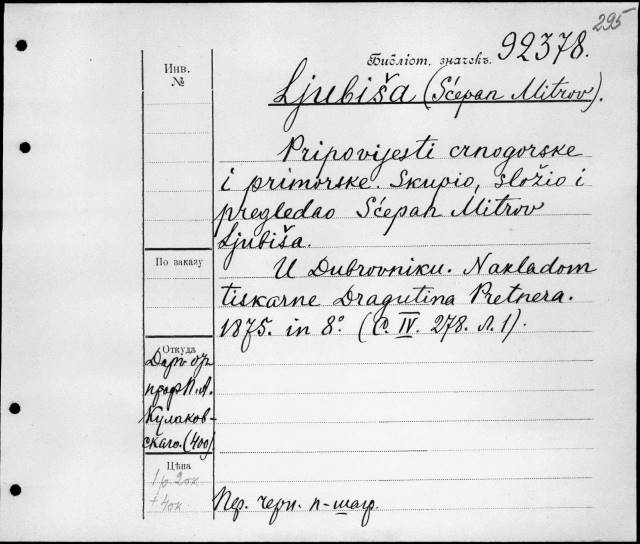 295
Библіот. значекъ. 92378.
Инв.
№
Ljubiša (Sćepan Mitrov).
Pripovijesti crnogorske
i primorske. Skupio, složio i
pregledao Sćepan Mitrov
Ljubiša.
По заказу
U Dubrovniku. Nakladom
tiskarne Dragutina Pretnera.
1875. in 8° (С. IV. 278. Л. 1).
Откуда
Даръ отъ
проф. П. А.
Кулаков-
скаго. (400)
Цѣна
1 р. 20 к.
+ 40 к.
Пер. черн. п-шагр.